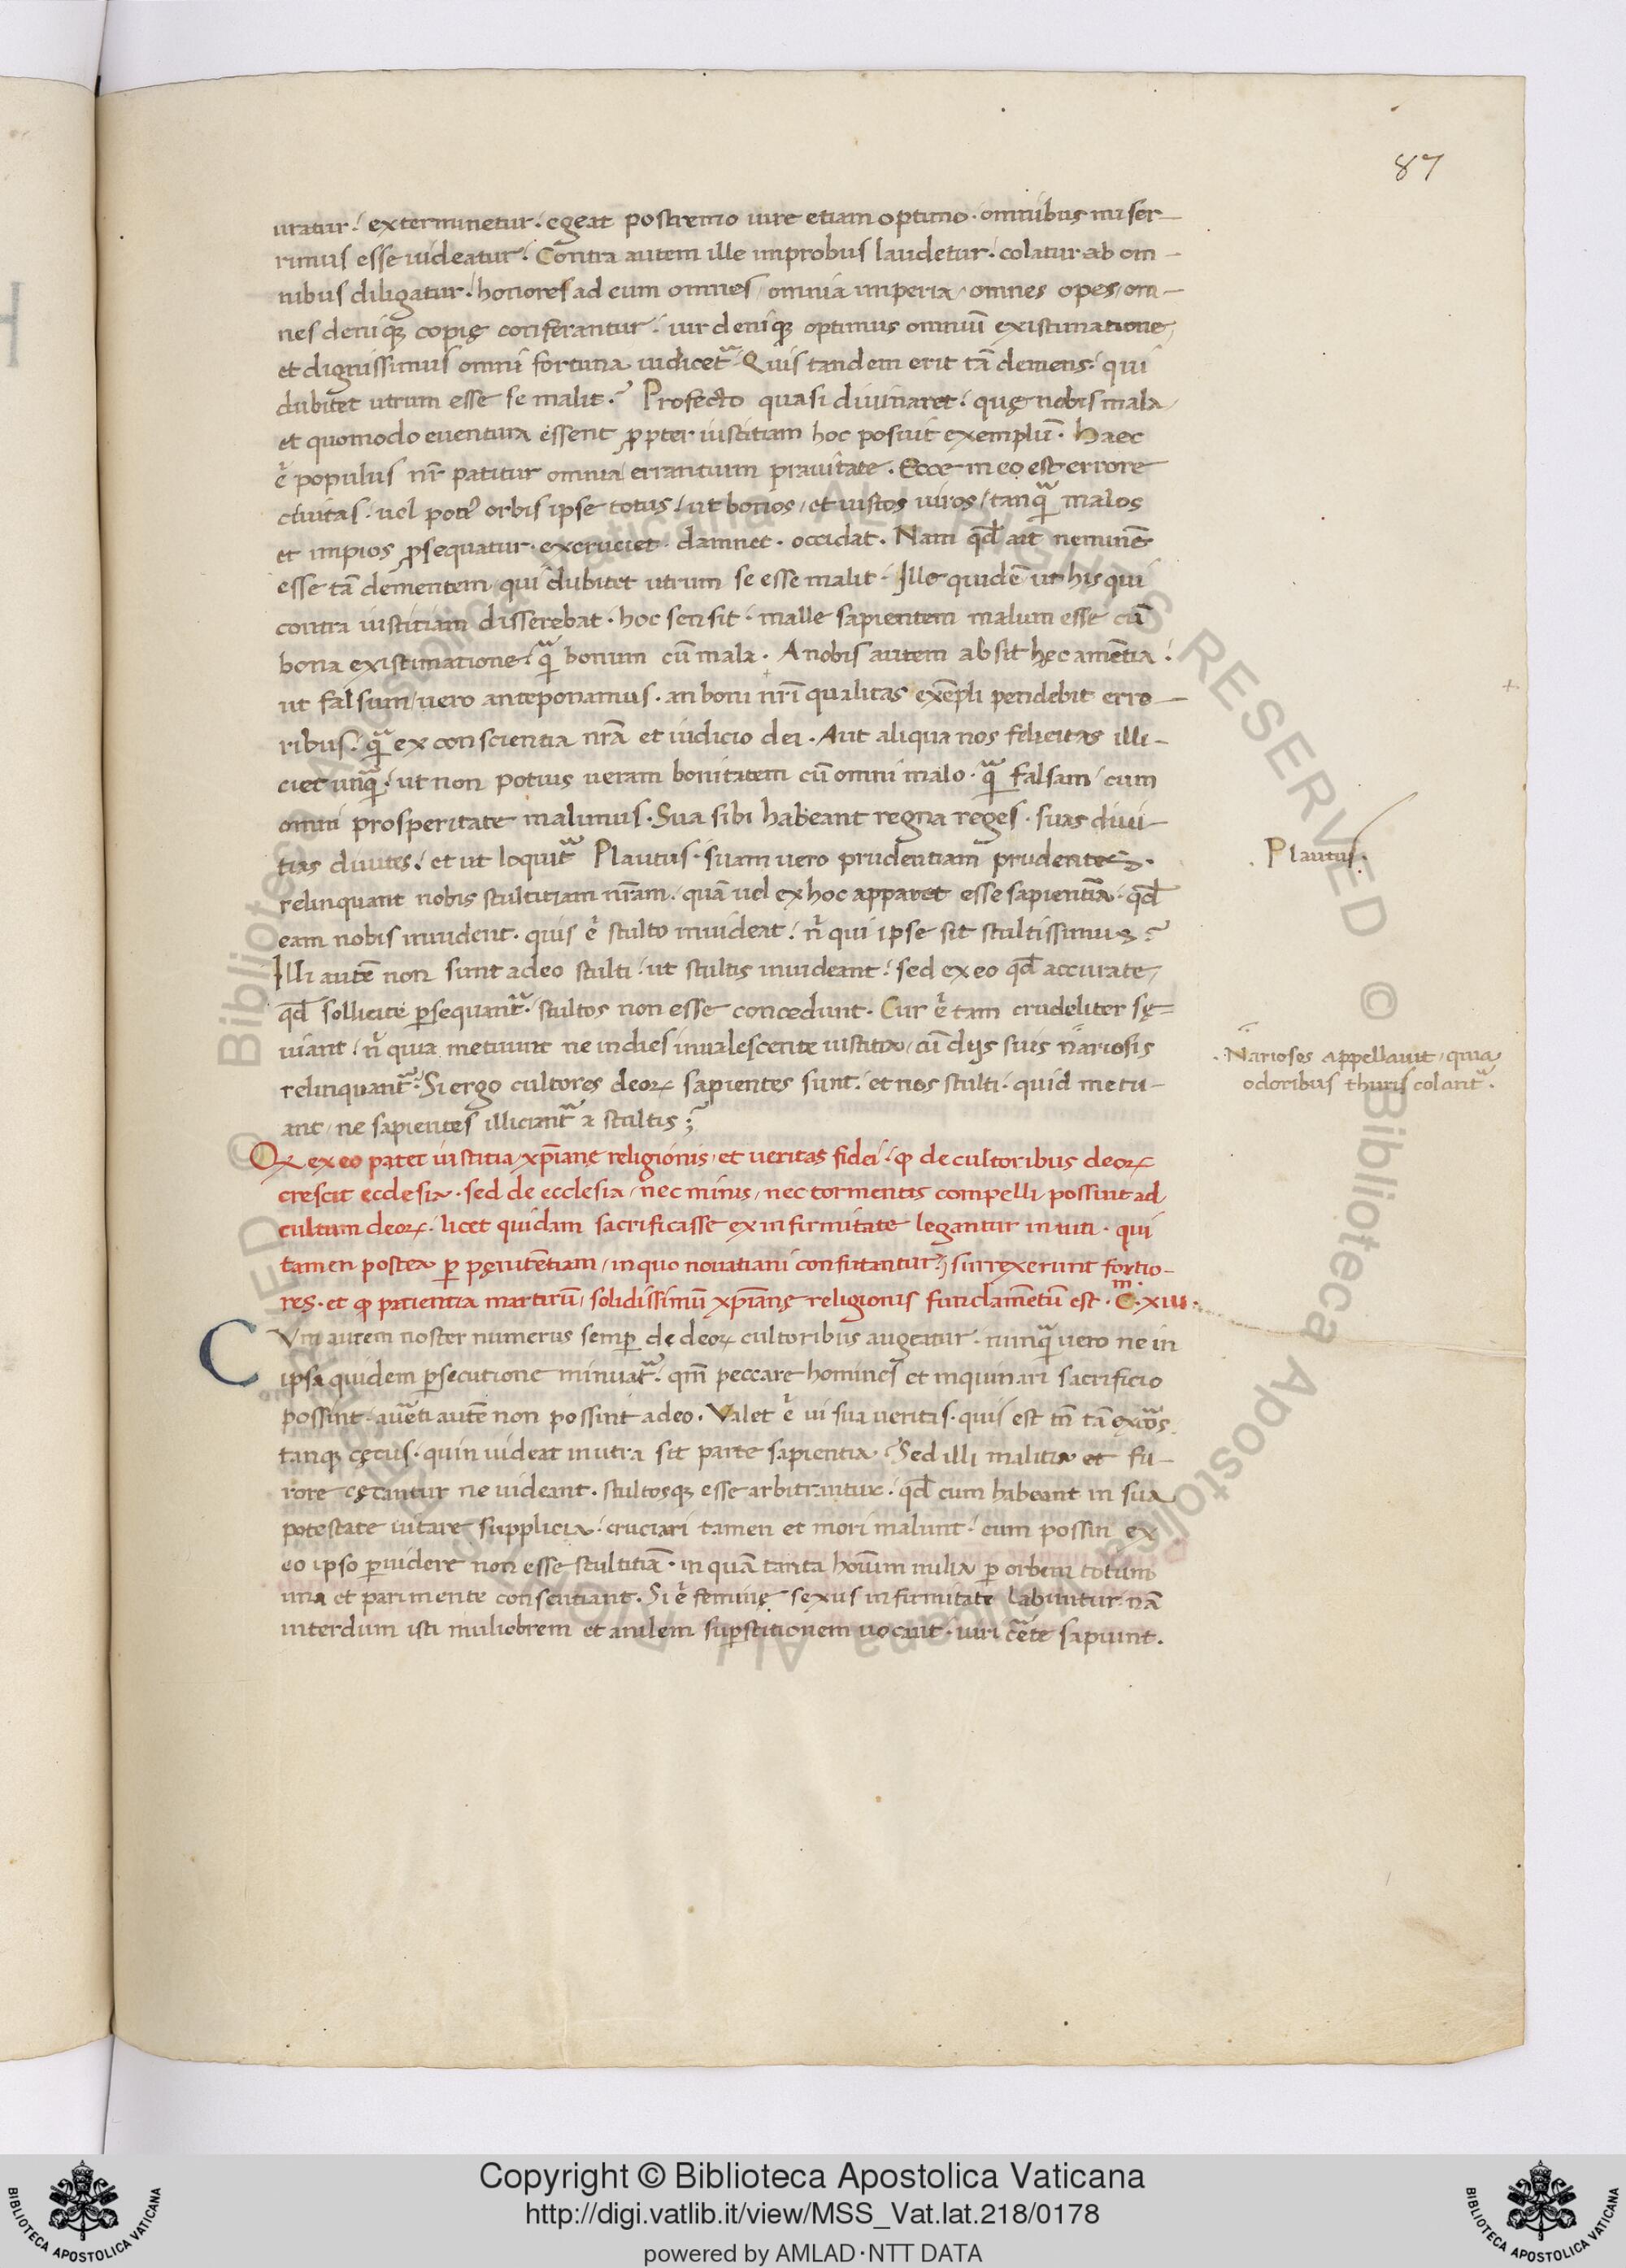 87
uratur. exterminetur. egeat postremo iure etiam optimo. omnibus miser-
rimus esse uideatur. Contra autem ille improbus laudetur. colatur ab om-
nibus diligatur. honores ad eum omnes / omnia imperia / omnes opes / om-
nes deniqꝫ copię conferantur. uir deniqꝫ optimus omniū existimatione,
et dignissimus omni fortuna iudicet᷑. Quis tandem erit tā demens. qui
dubitet utrum esse se malit? Profecto quasi diuinaret. quę nobis mala,
et quomodo euentura essent ꝓpter iustitiam hoc posuit exemplū. Haec
.n. populus nr̄ patitur omnia errantium prauitate. Ecce in eo est errore
ciuitas. uel poti᷒ orbis ipse totus. ut bonos / et iustos uiros / tanꝗ̄ malos
et impios ꝑsequatur. excruciet. damnet. occidat. Nam qd̄ ait neminē
esse tā dementem qui dubitet utrum se esse malit. Ille quidē ut his qui
contra iustitiam disserebat. hoc sensit. malle sapientem malum esse cū
bona existimatione. ꝗ̄ bonum cū mala. A nobis autem absit hęc amētia.
ut falsum / uero anteponamus. an boni nr̄i qualitas exēpli pendebit erro-
ribus. ꝗ̄ ex conscientia nr̄a et iudicio dei. Aut aliqua nos felicitas illi-
ciet unꝗ̄. ut non potius ueram bonitatem cū omni malo. ꝗ̄ falsam / cum
omni prosperitate malimus. Sua sibi habeant regna reges. suas diui-
tias diuites. et ut loquit᷑ Plautus. suam uero prudentiam prudentes.
relinquant nobis stultitiam nr̄am. quā uel ex hoc apparet esse sapientiā. qd̄
eam nobis inuident. quis .n. stulto inuideat. n̄ qui ipse sit stultissimus?
Illi autē non sunt adeo stulti. ut stultis inuideant. sed ex eo qd̄ accurate,
qd̄ sollicite ꝑsequant᷑. stultos non esse concedunt. Cur .n. tam crudeliter sę=
uiant. n̄ quia metuunt ne in dies inualescente iustitia / cū dijs suis nariosis
relinquant᷑. Si ergo cultores deoꝝ sapientes sunt. et nos stulti. quid metu-
ant / ne sapientes illiciant᷑ a stultis?
Qꝫ ex eo patet iustitia xp̄ianę religionis / et ueritas fidei. ꝙ de cultoribus deoꝝ
crescit ecclesia. sed de ecclesia / nec minis / nec tormentis compelli possint ad
cultum deoꝝ. licet quidam sacrificasse ex infirmitate legantur inuiti. qui
tamen postea ꝑ pęnitētiam / in quo nouatiani confutantur. surrexerunt fortio-
res. et ꝙ patientia martirū / solidissimū xp̄ianę religionis fundamētū est. C. XIII.
m
CVm autem noster numerus semꝑ de deoꝝ cultoribus augeatur. nunꝗ̄ uero ne in
ipsa quidem ꝑsecutione minuat᷑. qm̄ peccare homines et inquinari sacrificio
possint. auerti autē non possint a deo. Valet .n. ui sua ueritas. quis est tā
tanqꝫ cęcus. quin uideat in utra sit parte sapientia? Sed illi malitia et fu-
rore cęcantur ne uideant. stultosqꝫ esse arbitrantur. qd̄ cum habeant in sua
potestate uitare supplicia. cruciari tamen et mori malunt. cum possin ex
eo ipso ꝑuidere non esse stultitiā. in quā tanta hoīum milia ꝑ orbem totum
una et pari mente consentiant. Si .n. feminę sexus infirmitate labuntur. nā
interdum isti muliebrem et anilem suꝑstitionem uocant. uiri certe sapiunt.
Plautus.
Nariosos appellauit / quia
odoribus thuris colant᷑.
Copyright © Biblioteca Apostolica Vaticana
http://digi.vatlib.it/view/MSS_Vat.lat.218/0178
powered by AMLAD·NTT DATA
BIBLIOTECA APOSTOLICA VATICANA
BIBLIOTECA APOSTOLICA VATICANA